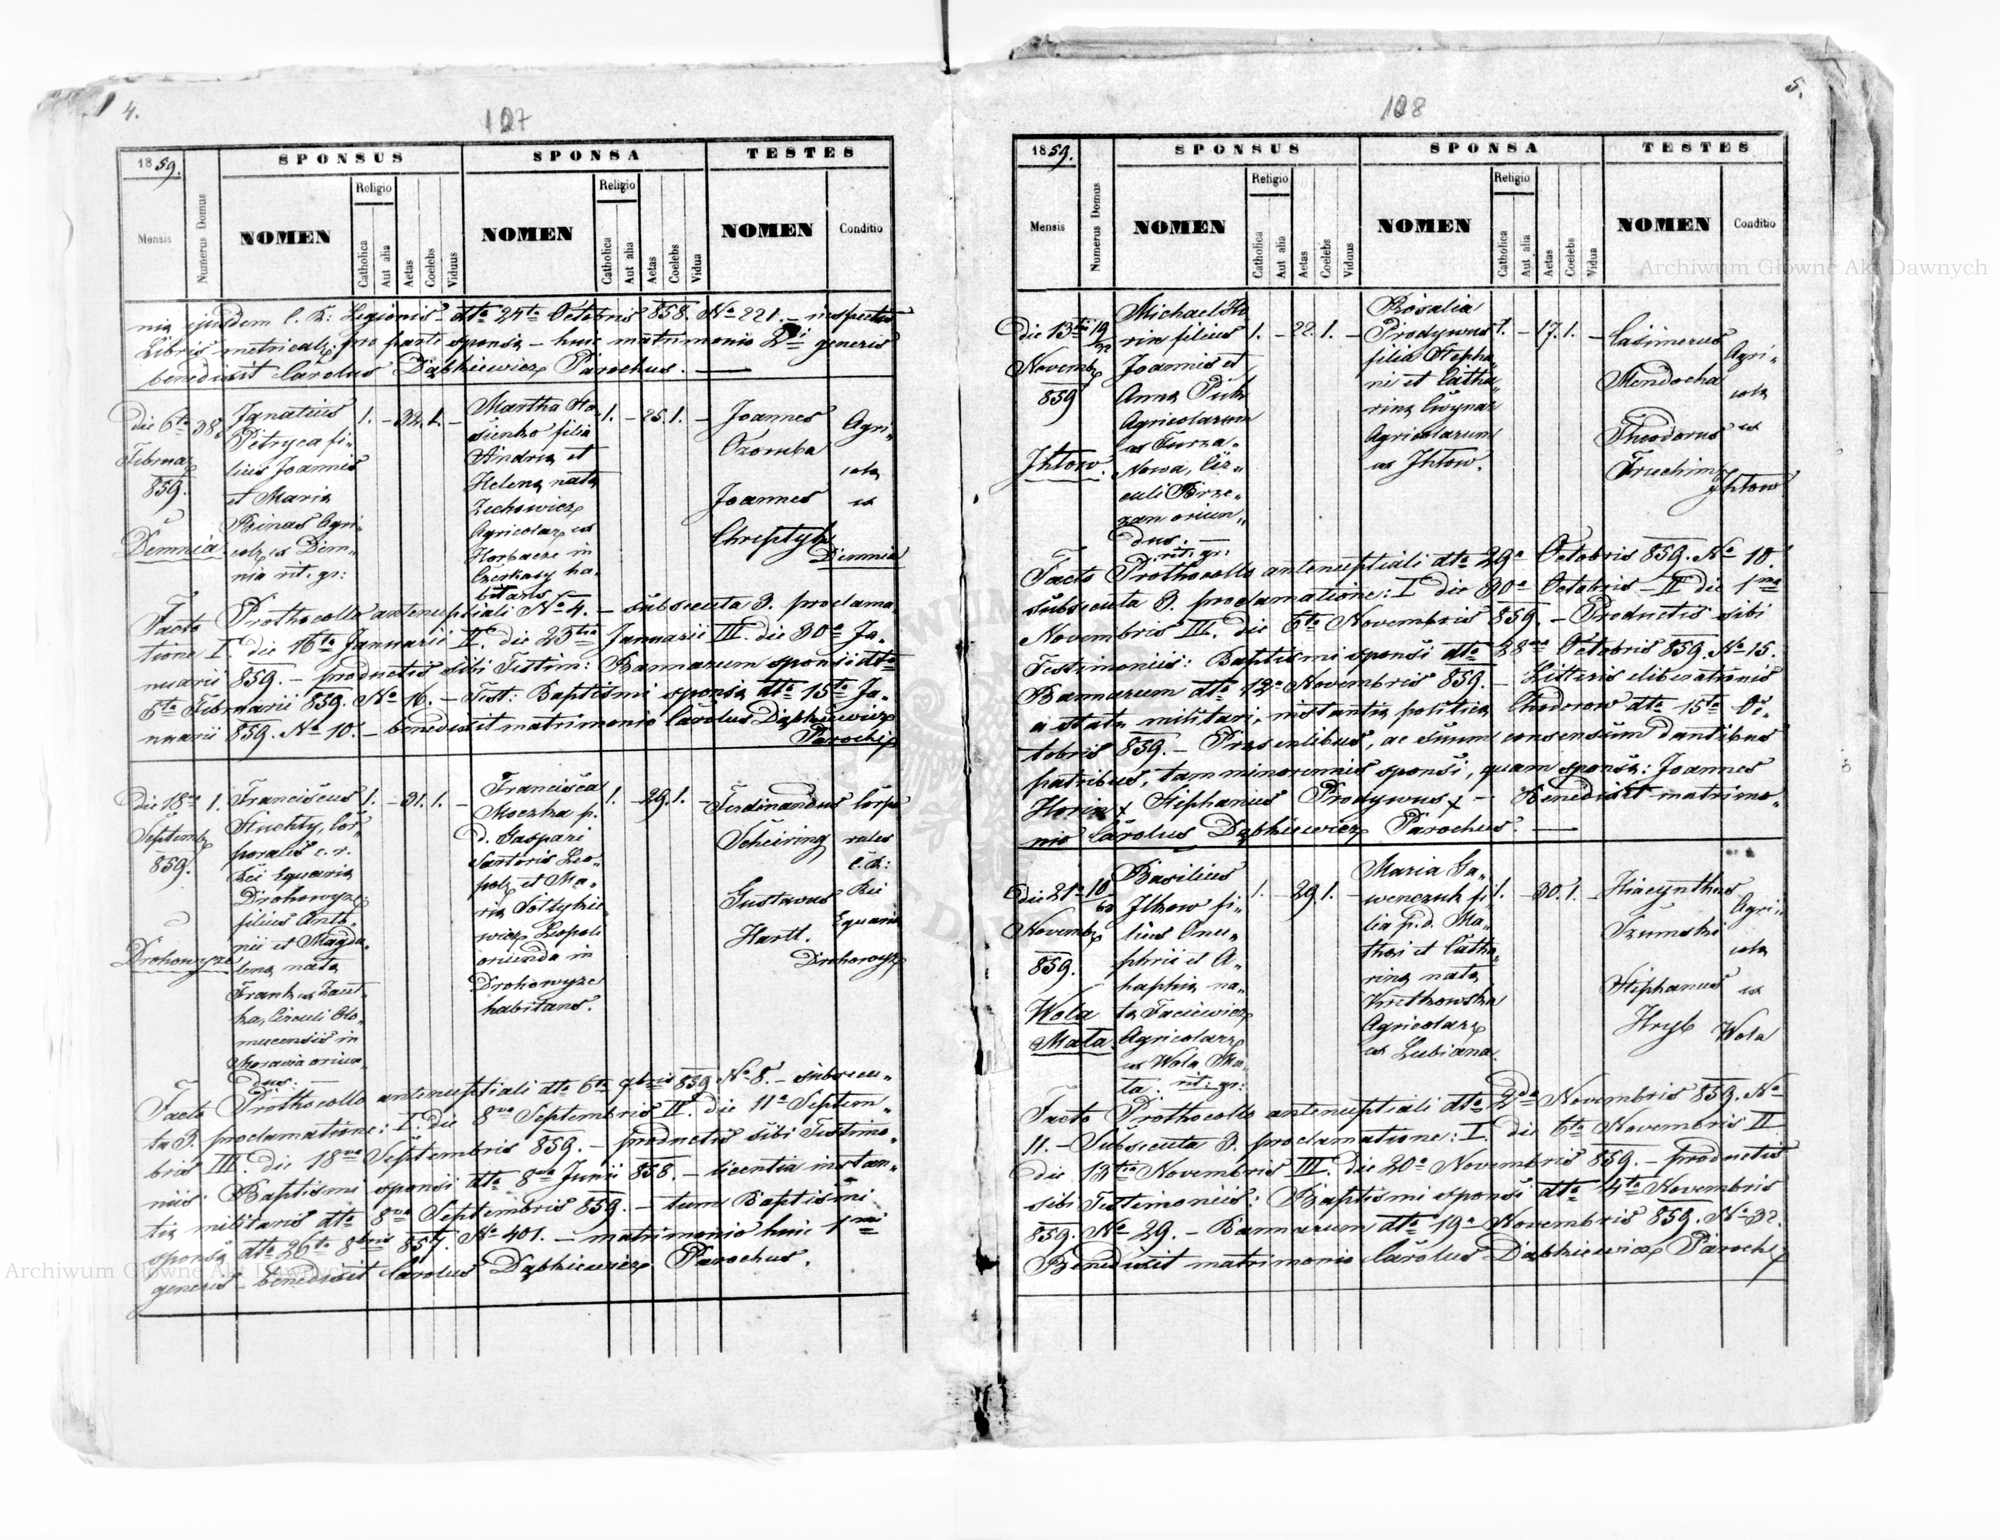 4.
107
1859.
SPONSUS
SPONSA
TESTES
Mensis
Numerus Domus
NOMEN
Religio
Catholica
Aut alia
Aetas
Coelebs
Viduus
NOMEN
Religio
Catholica
Aut alia
Aetas
Coelebs
Vidua
NOMEN
Conditio
benedixit Carolus Dąbkiewicz Parochus.
Die 6ta
Februar
859.
Demnia
38.
Ignatius
Petryca fi-
lius Joannis
et Maria
nia rit. gr:
1. - 34. 1. -
Martha
sienko filia
Andrea et
Helena nata
Zechowicz
Agricolar ex
Horbacze in
Czerkasy ha-
bitans
1. - 25. 1. -
Joannes
Ozomba
Joannes
Agri-
cola
ex
Demnia
Facto Prothocollo antenuptiali No 4. - subsecuta 3. proclama-
tione I. die 16ta Januarii II. die 23tia Januarii III. die 30a Ja-
nuarii 859. - productis sibi Testim: Bannarum sponsi dto
6ta Februarii 859. No 16. - Test: Baptismi sponsa dto 15ta Ja-
nuarii 859. No 10. - benedixit matrimonio Carolus Dąbkiewicz
Parochus
Die 18va
Septemb
859.
Drohowyze
1.
Franciscus
poralis c. r.
Rei Equaria
Drohowyze
filius Anto-
nii et Magda-
lena nata
Frank ex
ka, Circuli Olo-
mucensis in
Moravia oriun-
dus.
1. - 31. 1. -
Francisca
Moczka p.
d. Gaspari
Sartoris Leo-
polz et Ma-
ria Soltykie-
wicz Leopoli
oriunda in
Drohowyze
habitans.
1. - 29. 1. -
Ferdinandus
Scheiring
Gustavus
Hartl.
Corpo
rales
C. R:
Rei
Equaria
Drohowyz
Facto Prothocollo antenuptiali dto 6ta 7bris 859 No 8. - subsecu-
ta 3. proclamatione: I. die 8va Septembris II. die 11a Septem-
bris III. die 18va Septembris 859. - productis sibi Testimo-
niis: Baptismi sponsi dto 8va Junii 858. - licentia instan-
tia militaris dto 8va Septembris 859. - tum Baptismi
sponsa dto 26ta 8bris 857. No 401. - matrimonio huic 1mi
generis - benedixit Carolus Dąbkiewicz Parochus.
5.
108
1859.
SPONSUS
SPONSA
TESTES
Mensis
Numerus Domus
NOMEN
Religio
Catholica
Aut alia
Aetas
Coelebs
Viduus
NOMEN
Religio
Catholica
Aut alia
Aetas
Coelebs
Vidua
NOMEN
Conditio
Die 13tia
Novemb
859
Ihtow.
Michael Ho
rin filius
Joannis et
Anna
Agricolarum
ex Turza-
Nowa, Cir-
culi Brze-
zan oriun-
dus. -
rit. gr:
1. - 22. 1. -
Rosalia
Prodywus
filia Stepha-
ni et Catha-
rina
Agricolarum
ex Ihtow.
1. - 17. 1. -
Casimerus
Mendocha
Theodorus
Agri-
cola
ex
Ihtow
Facto Prothocollo antenuptiali dto 29a Octobris 859. No 10.
subsecuta 3. proclamatione: I die 30a Octobris - II die 1ma
Novembris III. die 6ta Novembris 859. - Productis sibi
Testimoniis: Baptismi sponsi dto 28va Octobris 859. No 15.
Bannarum dto 12a Novembris 859. - Litteris eliberationis
a statu militari, instantia politica Chodorow dto 15ta Oc-
tobris 859. - Prasentibus, ac suum consensum dantibus
patribus, tam minorennis sponsi, quam sponsa: Joannes
Horin x Stephanus Prodywus x - Benedixit matrimo-
nio Carolus Dąbkiewicz Parochus.
Die 21a
Novemb
859.
Wola
Mała
10
60
Basilius
Ilkow fi-
lius Onu-
phrii et A-
haphia na-
ta
Agricolarz
ex Wola Ma-
ła. rit: gr:
1. - 29. 1. -
Maria Ga-
wenczuk fi-
lia p. d. Ma-
thei et Catha-
rina nata
Agricolarz
ex Lubiana
1. - 30. 1. -
Hiacynthus
Szumski
Stephanus
Hryb
Agri-
cola
ex
Wola
Facto Prothocollo antenuptiali dto 2da Novembris 859. No
11. - Subsecuta 3. proclamatione: I. die 6ta Novembris II
die 13tia Novembris III. die 20a Novembris 859. - productis
sibi Testimoniis: Baptismi sponsi dto 4ta Novembris
859. No 29. - Bannarum dto 19a Novembris 859. No 32.
Benedixit matrimonio Carolus Dąbkiewicz Parochus
Archiwum Główne Akt Dawnych
Archiwum Główne Akt Dawnych